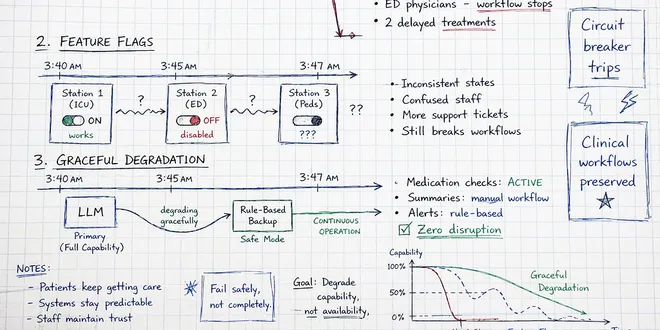 • ED physicians - workflow stops
• 2 delayed treatments
2. FEATURE FLAGS
3:40 AM 3:45 AM 3:47 AM
Station 1 (ICU)
ON
works
?
Station 2 (ED)
OFF
disabled
?
Station 3 (Peds)
???
??
• Inconsistent states
• Confused staff
• More support tickets
• Still breaks workflows
Circuit
breaker
trips
Clinical
workflows
preserved
3. GRACEFUL DEGRADATION
3:40 AM 3:45 AM 3:47 AM
LLM
Primary
(Full Capability)
degrading
gracefully
Rule-Based
Backup
Safe Mode
CONTINUOUS
OPERATION
• Medication checks: ACTIVE
• Summaries: manual workflow
• Alerts: rule-based
Zero disruption
NOTES:
- Patients keep getting care
- Systems stay predictable
- Staff maintain trust
Fail safely,
not completely.
Goal: Degrade
capability,
not availability.
Capability
100%
50%
0%
Graceful
Degradation